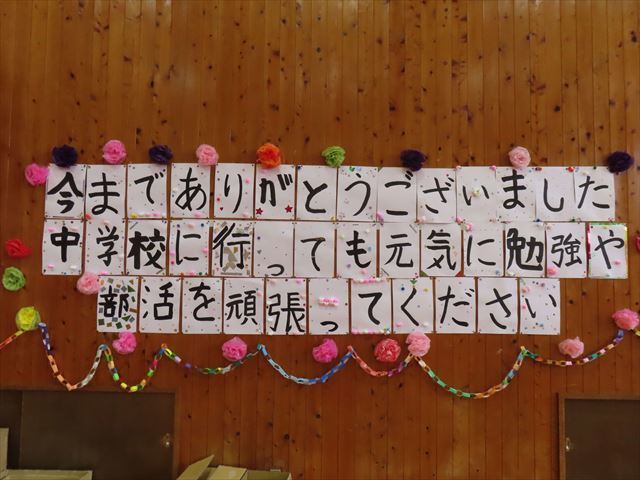 今までありがとうございました
中学校に行っても元気に勉強や
部活を頑張ってください